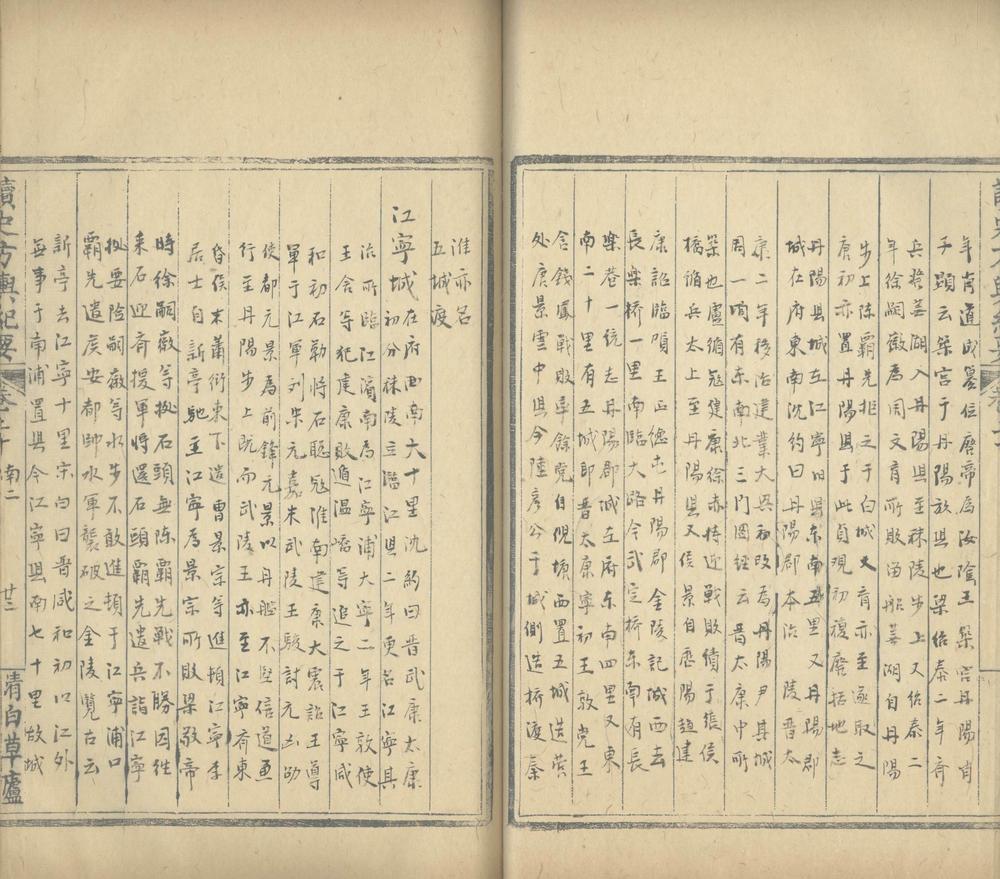 年肖道成篡位廢帝為汝陰王築宮丹陽肖
子顯云築宮于丹陽故縣也梁紹泰二年齊
兵發蕪湖入丹陽縣至秣陵步上又紹泰二
年徐嗣徽為周文育所敗留船蕪湖自丹陽
步上陳霸先拒之于白城文育亦至遂敗之
唐初亦置丹陽縣于此貞觀初復廢括地志
丹陽縣城在江寧旧縣東南五里又丹陽郡
城在府東南沈約曰丹陽郡本治陵晉太
康二年移治建業大興初改為丹陽尹其城
周一頃有東南北三門圖經云晉太康中所
築也盧循寇健康徐赤特逆戰敗績于張侯
橋循兵大上至丹陽郡又侯景自歷陽趨建
康詔臨賀王正德屯丹陽郡金陵記城西去
長樂橋一里南臨大路今武定橋東南有長
樂巷一統志丹陽郡城在府東南四里又東
南二十里有五城即晉太康寧初王敦兄王
含錢鳳戰敗率餘党自倪塘西置五城造營
处唐景雲中縣令陸彥公于城側造橋渡秦
淮亦名
五城渡
江寧城在府西南六十里沈約曰晉武康太康
初分秣陵立臨江縣二年更名江寧縣
治所臨江濱南為江寧浦大寧二年王敦使
王含等犯建康敗遁溫嶠等追之于江寧咸
和初石勒將石聰寇淮南建康大震詔王導
軍于江寧刘宋元嘉末武陵王駿討元凶劭
使都元景為前鋒元景以舟艦不堅倍道亟
行至丹陽步上既而武陵王亦至江寧齊東
昏侯末蕭衍東下遣曹景宗等進頓江寧李
居士自新亭馳至江寧為景宗所敗梁敬帝
時徐嗣徽等拠石頭無陳霸先戰不勝因往
來石迎齊援軍將還石頭霸先遣兵詣江寧
拠要險嗣徽等水步不敢進頓于江寧浦口
霸先遣侯安都帥水軍襲破之金陵覽古云
新亭去江寧十里宗白曰晉咸和初以江外
無事于南浦置縣今江寧縣南七十里故城
讀史方輿紀要 卷二十 南二 廿三 清白草廬